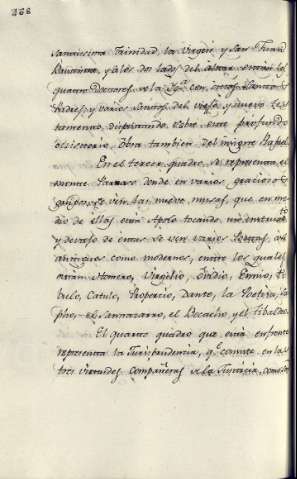 268
Santissima Trinidad, la Virgen, y San Juan
Bautista, y a los dos lados del altar estan los
quatro Doctores de la Ygª con otros Santos
Padres, y varios Santos del viejo, y nuevo Tes-
tamento, disputando sobre este profundo
misterio. Obra tambien del insigne Rafael.
En el tercer quadro se representa el
monte Parnaso donde en varios graciosos
grupos se ven las nueve musas, que en me-
dio de ellas está Apolo tocando un instrumto
y devajo de estas se ven varios Poetas, asi
antiguos como modernos, entre los quales
están Homero, Virgilio, Ovidio, Ennio, Ti-
bulo, Catulo, Propercio, Dante, la Poetisa Sa-
pho, el Sannazarro, el Bocacio, y el Tibaldeo.
El quarto quadro que está enfrente
representa la Jurisprudencia, qe consiste en las
tres virtudes compañeras de la Justicia, como son